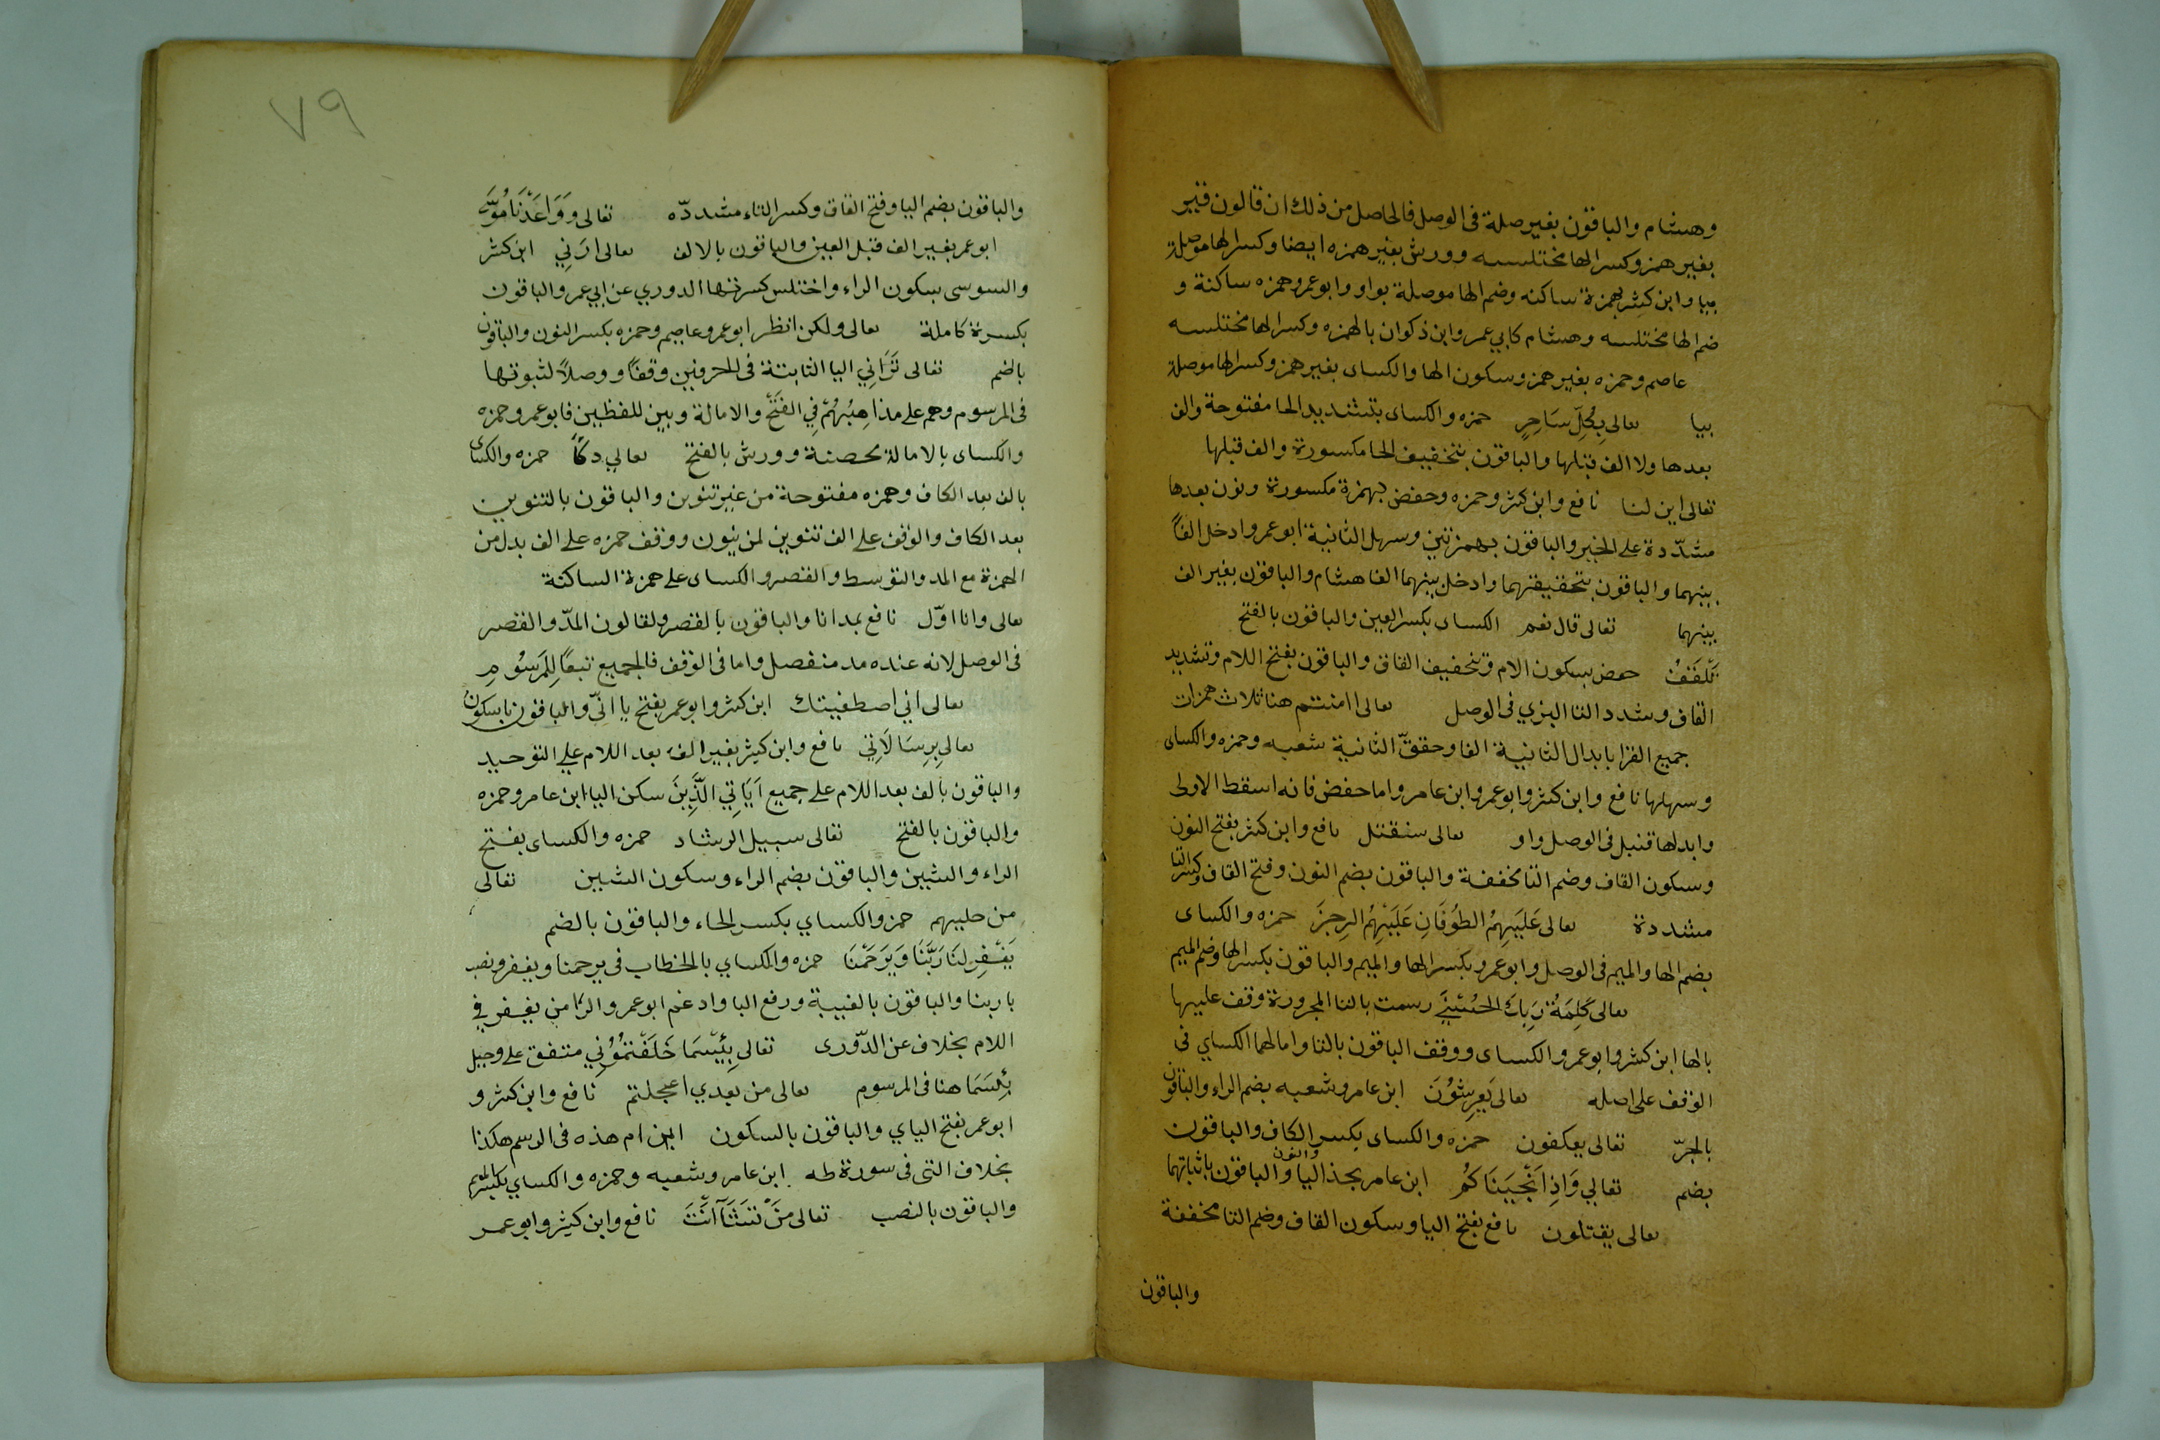 وهشام والباقون بغير صلة فى الوصل فالحاصل من ذلك ان قالون قير
بغير همز وكسر الها مختلسه وورش بغير همزه ايضا وكسر الها موصلة
بيا وابن كثير بهمزة ساكنه وضم الها موصلة بواو وابو عمرو همزه ساكنة و
ضم الها مختلسه وهشام كابي عمر وابن ذكوان بالهمزه وكسر الها مختلسه
عاصم وحمزه بغير همز وسكون الها والكساى بغير همز وكسر الها موصلة
بيا تعالى بِكُلِّ سَاحِرٍ حمزه والكساى بتشديد الحا مفتوحة والف
بعدها ولا الف قبلها والباقون بتخفيف الحا مكسورة والف قبلها
تعالى اين لنا نافع وابن كثر وحمزه وحفض بهمزة مكسورة ونون بعدها
مشدّدة على الخبر والباقون بهمزتين وسهل الثانية ابو عمر وادخل الفاً
بينهما والباقون بتحقيقهما وادخل بينهما الفا هشام والباقون بغير الف
بينهما تعالى قال نعم الكساى بكسر العين والباقون بالفتح
تَلْقَفْ حفص بسكون الام وتخفيف القاف والباقون بفتح اللام وتشديد
القاف وشدد التا البزي فى الوصل تعالى اامنتم هنا ثلاث همزات
جميع القرا بابدال الثانية الفا وحققّ الثانية شعبه وحمزه والكساى
وسهلها نافع وابن كثر وابو عمر وابن عامر واما حفض فانه اسقط الاولى
وابدلها قنبل فى الوصل واو تعالى سنقتل نافع وابن كثر بفتح النون
وسكون القاف وضم التا مخففة والباقون بضم النون وفتح القاف وكسر التا
مشددة تعالى عَلَيهِمُ الطُوفَانِ عَلَيْهِمُ الرِجزَ حمزه والكساى
بضم الها والميم فى الوصل وابو عمر وبكسر الها والميم والباقون بكسر الها وضم الميم
تعالى كَلِمَةُ رَبِكَ الحُسْنَي رسمت بالتا المجرورة وقف عليها
بالها ابن كثر وابو عمر والكساى ووقف الباقون بالتا وامالها الكساي فى
الوقف على اصله تعالى يَعرِشُوُنَ ابن عامر وشعبه بضم الراء والباقون
بالجرّ تعالى يعكفون حمزه والكساى بكسر الكاف والباقون
بضم تعالي وَاِذِ اَنْجَيَنَا كُم ابن عامر بحذ اليا والنون والباقون باثباتهما
تعالى يقتلون نافع بفتح اليا وسكون القاف وضم التا مخففة
والباقون
٧٩
والباقون بضم اليا وفتح القاف وكسر التاء مشددّه تعالى وَوَاعَدْنَا مُوسَى
ابو عمر بغير الف قبل العين والباقون بالالف تعالى ارَنِي ابن كثر
والسوسى بسكون الراء واختلس كسرتها الدوري عن ابي عمر والباقون
بكسرة كاملة تعالى ولكن انظر ابو عمر وعاصم وحمزه بكسر النون والباقون
بالضم تعالى تَرَانِي اليا الثابتة فى الحرفين وقفاً ووصلاً لثبوتها
فى المرسوم وهم على مذاهِبُهُمْ فِي الفَتْحِ والامالة وبين للفظين فابو عمر وحمزه
والكساى بالامالة محصنة وورش بالفتح تعالي دكاً حمزه والكساى
بالف بعد الكاف وهمزه مفتوحة من غير تنوين والباقون بالتنوين
بعد الكاف والوقف على الف تنوين لمن ينون ووقف حمزه على الف بدل من
الهمزة مع المد والتوسط والقصر والكساى على حمزة الساكنة
تعالى وانا اوّل نافع بمد انا والباقون بالقصر ولقالون المدّ والقصر
فى الوصل لانه عنده مد منفصل واما فى الوقف فالجميع تبعًا لِلمَرسُومِ
تعالى انى اصطفيتك ابن كثر وابو عمر بفتح يا انّي والباقون باسكون
تعالى بِرِسَالَاتِي نافع وابن كثير بغير الف بعد اللام علي التوحيد
والباقون بالف بعد اللام على جميع اَيَاتِي الَّذِينَ سكن اليا ابن عامر وحمزه
والباقون بالفتح تعالى سبيل الرشاد حمزه والكساى بفتح
الراء والشين والباقون بضم الراء وسكون الشين تعالى
من حليهم حمز والكساي بكسر الحاء والباقون بالضم
يَغْفِر لَنَا رَبَّنَا وَيَرَحَمْنَا حمزه والكساي بالخطاب فى يرحمنا ويغفر ونصب
با ربنا والباقون بالغيبة ورفع البا وادغم ابو عمر والرا من يغفر في
اللام بخلاف عن الدّورى تعالى بِئِسَمَا خَلَفْتمُوُنِي متفق على وصل
بِئِسَمَا هنا فى المرسوم تعالى من بعدي اعجلتم نافع وابن كثر و
ابو عمر بفتح الياي والباقون بالسكون ابن ام هذه فى الرسم هكذا
بخلاف التى فى سورة طه ابن عامر وشعبه وحمزه والكساي بكسر الميم
والباقون بالنصب تعالى مَنْ تَشَآ اَنْتَ نافع وابن كثير وابو عمر